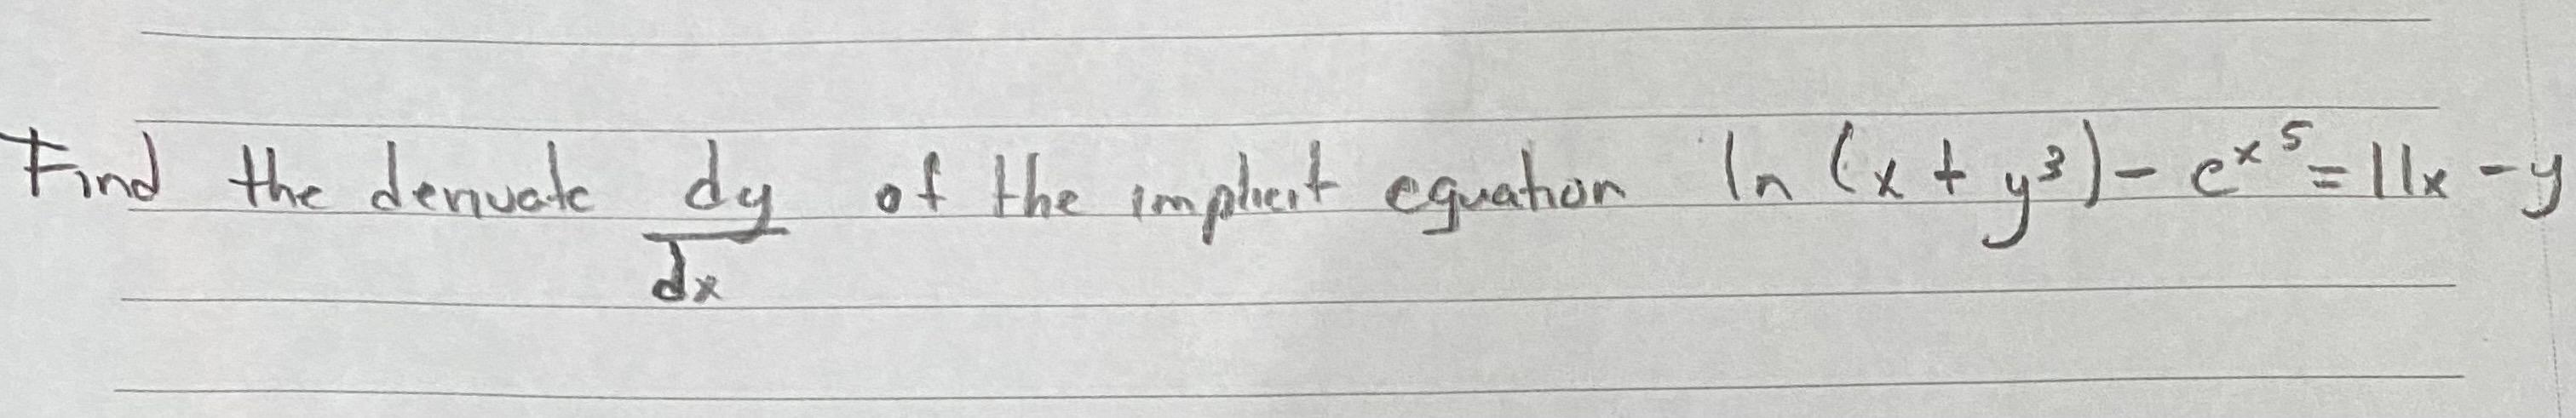 Find the derivate dy/dx of the implicit equation ln (x + y³) - e^x^5 = 11x - y